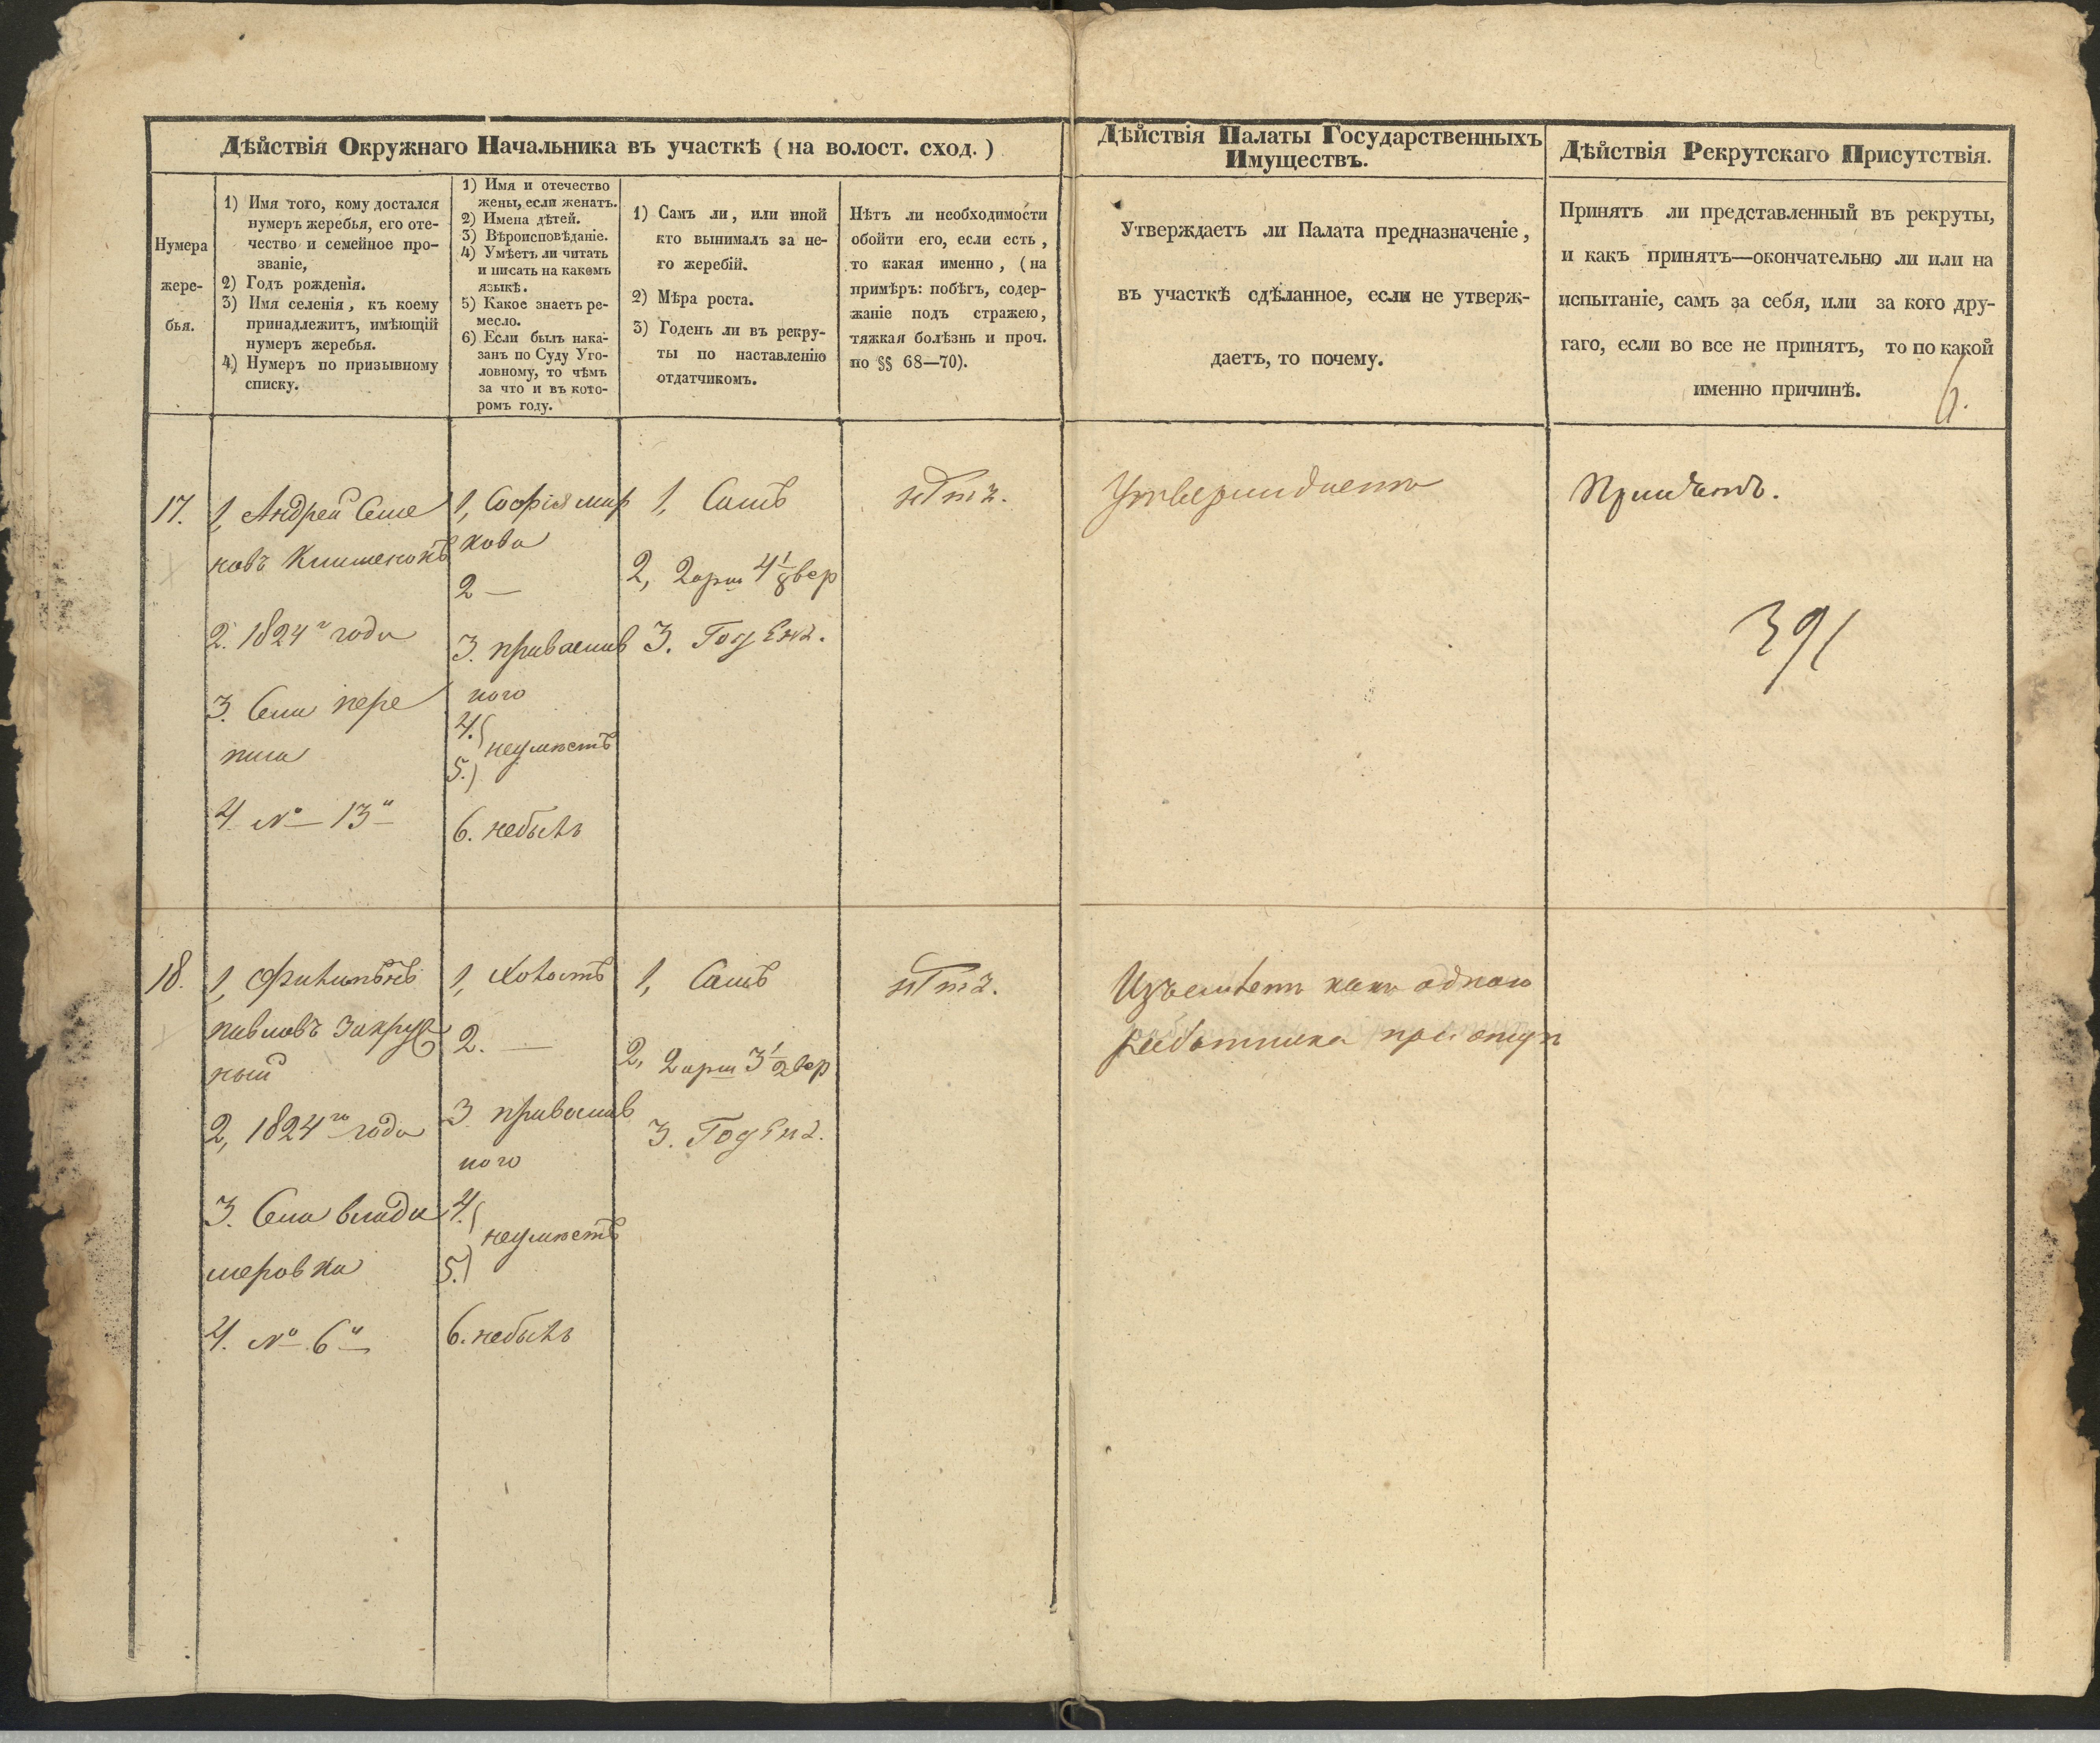 Дѣйствія Окружнаго Начальника въ участкѣ (на волост. сход.)
Нумера
жере-
бья.
1) Имя того, кому достался
нумеръ жеребья, его оте-
чество и семейное про-
званіе,
2) Годъ рожденія.
3) Имя селенія, къ коему
принадлежитъ, имѣющій
нумеръ жеребья.
4) Нумеръ по призывному
списку.
1) Имя и отечество
жены, если женатъ.
2) Имена дѣтей.
3) Вѣроисповѣданіе.
4) Умѣетъ ли читать
и писать на какомъ
языкѣ.
5) Какое знаетъ ре-
месло.
6) Если былъ нака-
занъ по Суду Уго-
ловному, то чѣмъ
за что и въ кото-
ромъ году.
1) Самъ ли, или иной
кто вынималъ за не-
го жеребій.
2) Мѣра роста.
3) Годенъ ли въ рекру-
ты по наставленію
отдатчикомъ.
Нѣтъ ли необходимости
обойти его, если есть,
то какая именно, (на
примѣръ: побѣгъ, содер-
жаніе подъ стражею,
тяжкая болѣзнь и проч.
по §§ 68—70).
Дѣйствія Палаты Государственныхъ
Имуществъ.
Утверждаетъ ли Палата предназначеніе,
въ участкѣ сдѣланное, если не утверж-
даетъ, то почему.
Дѣйствія Рекрутскаго Присутствія.
Принятъ ли представленный въ рекруты,
и какъ принятъ—окончательно ли или на
испытаніе, самъ за себя, или за кого дру-
гаго, если во все не принятъ, то по какой
именно причинѣ.
17.
1, Андрей Семе
новъ
2. 1824 года
3. Села пере
пила
4 № 13
1, Софія мар
кова
2 —
3. православ
ного
4.
неумѣетъ
5.
6. небылъ
1, Самъ
2, 2 арш 4 1/8 вер
3. Годенъ.
нѣтъ.
Утверждаетъ
Принятъ.
391
18.
1,
павловъ
ный
2, 1824го года
3. Села влади
меровка
4. № 6
1, Холостъ
2. —
3 православ
ного
4.
неумѣетъ
5.
6. небылъ
1, Самъ
2, 2 арш 3 1/2 вер
3. Годенъ.
нѣтъ.
какъ одного
работника